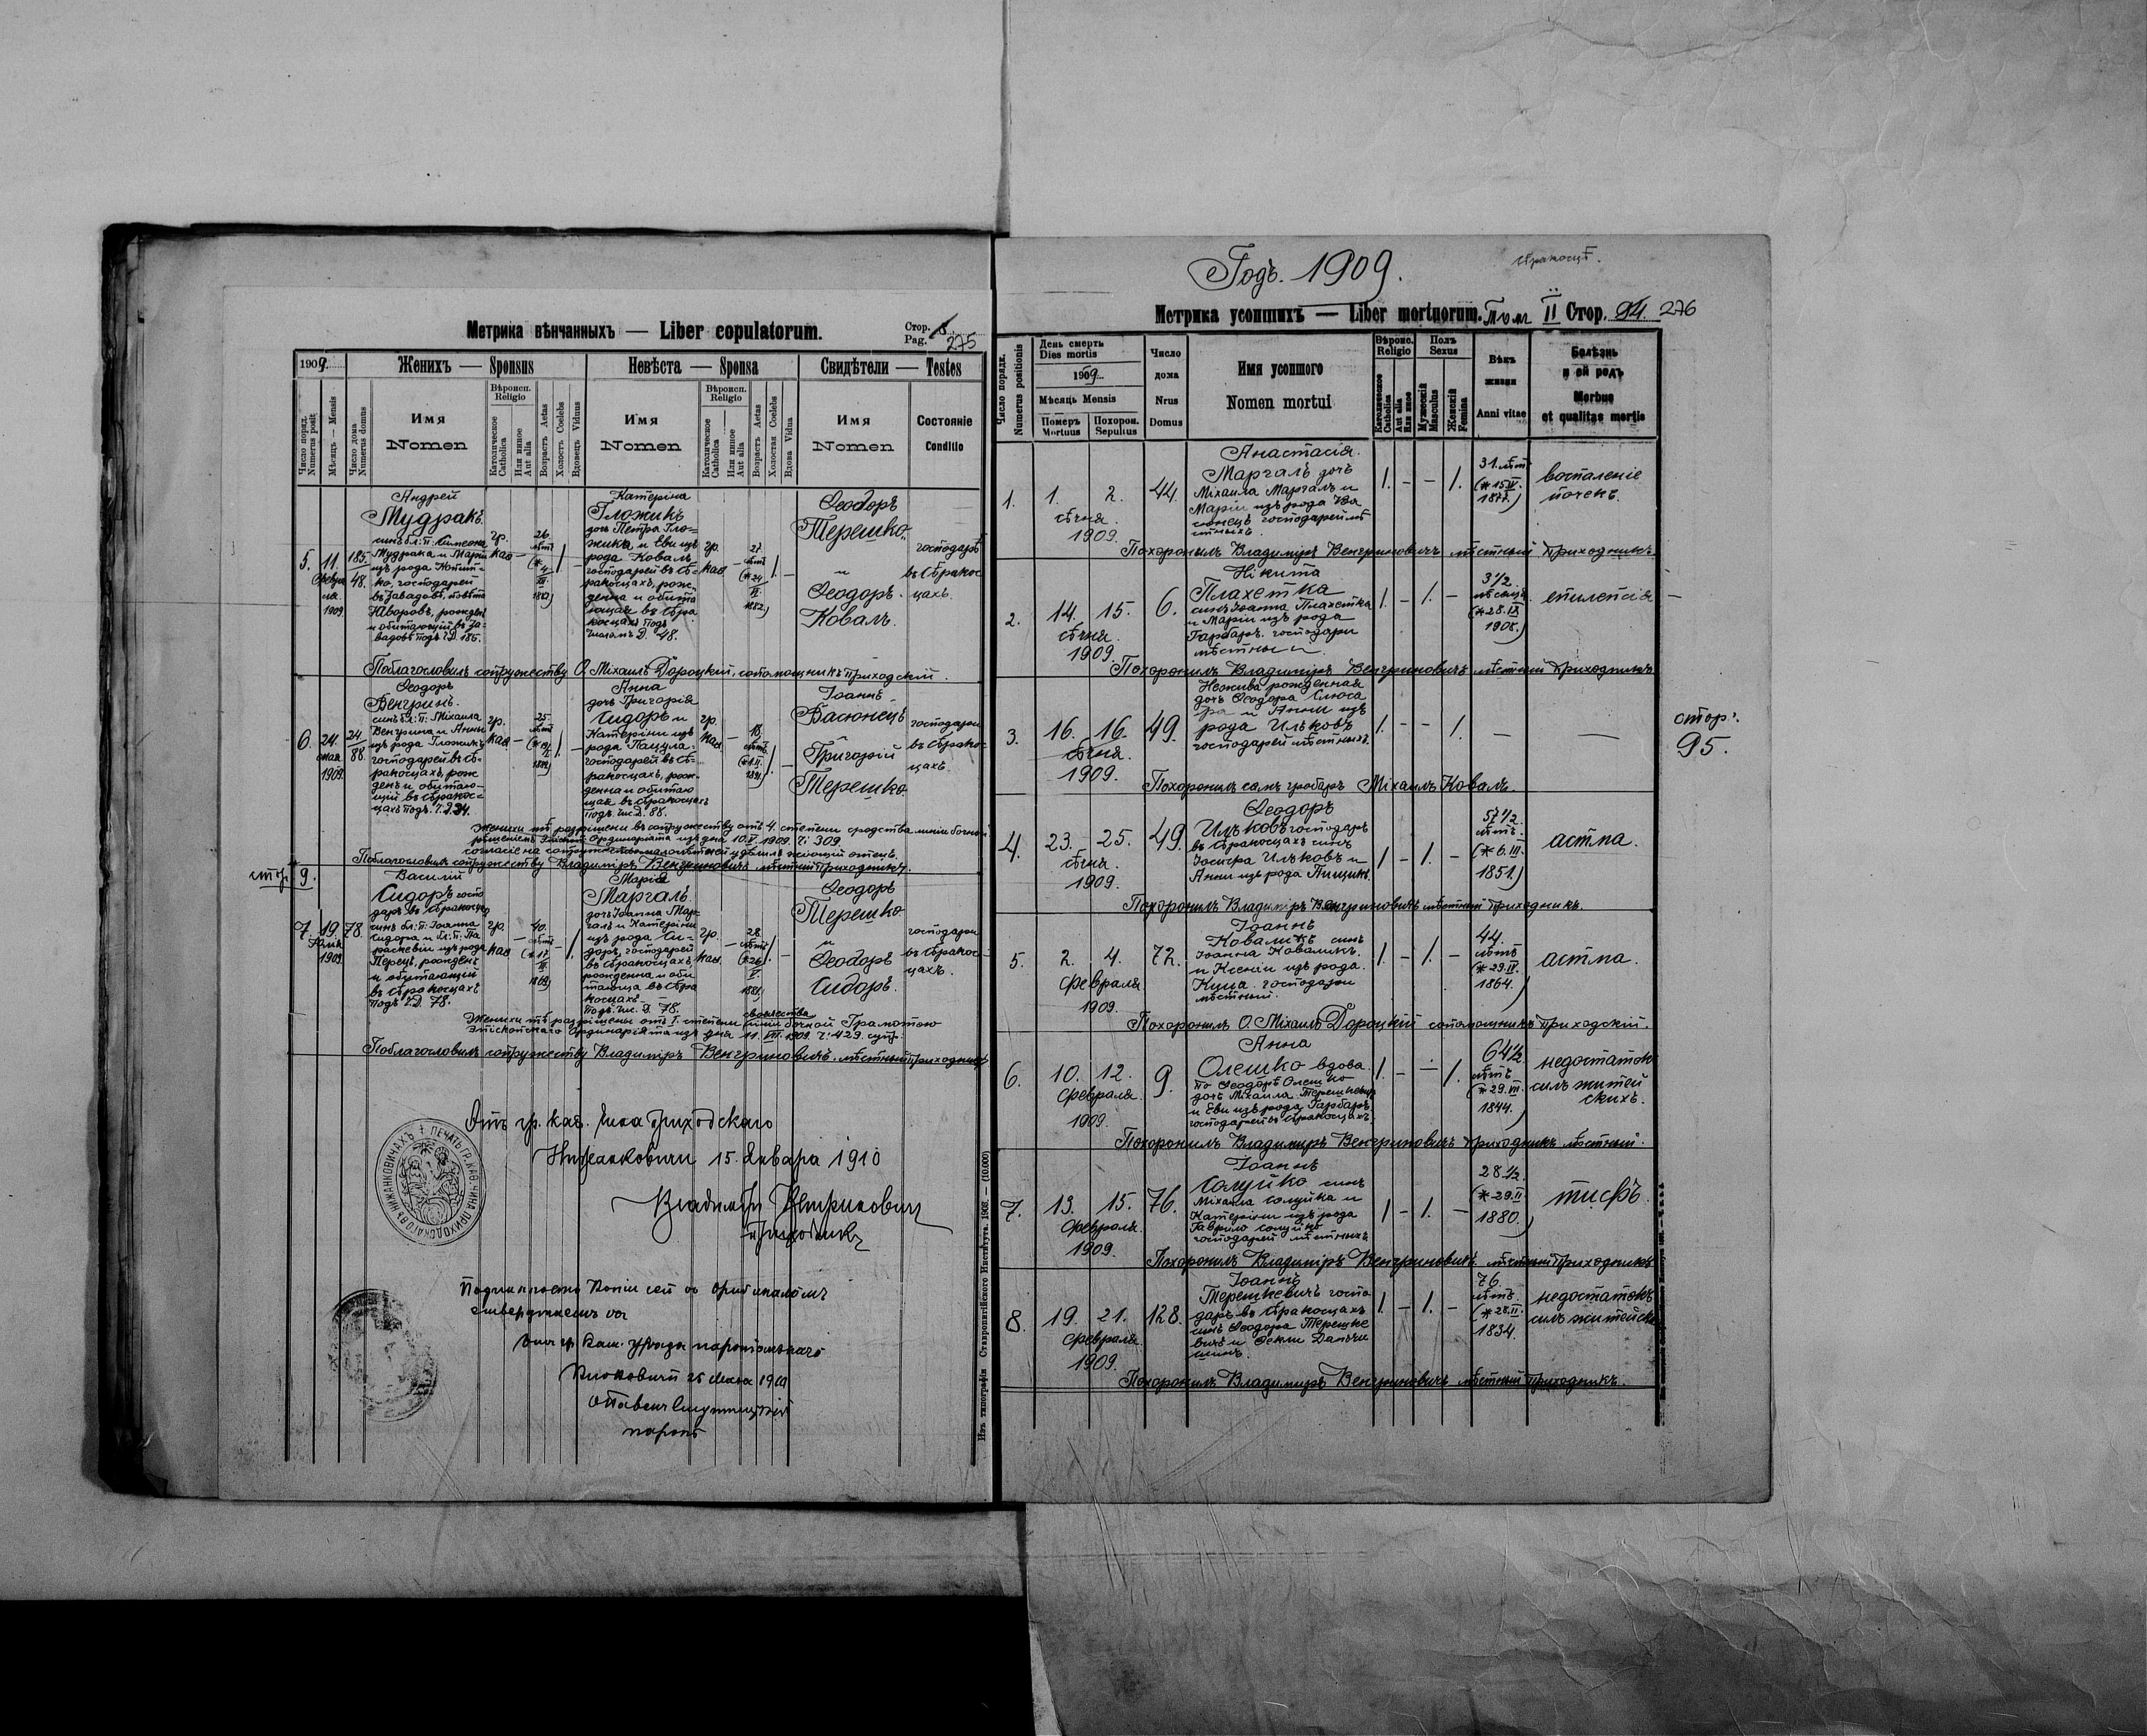 Метрика вѣнчанныхъ — Liber copulatorum.
Стор.
Pag. 275
1909.
Женихъ — Sponsus
Невѣста — Sponsa
Свидѣтели — Testes
Число поряд.
Numerus posit
Мѣсяць — Mensis
Число дома
Numerus domus
Имя
Nomen
Вѣроисп.
Religio
Католическое
Catholica
Или инное
Aut alia
Возрастъ Aetas
Холостъ Coelebs
Вдовецъ Viduus
Имя
Nomen
Вѣроисп.
Religio
Католическое
Catholica
Или инное
Aut alia
Возрастъ Aetas
Холостая Coelebs
Вдова Vidua
Имя
Nomen
Состояніе
Conditio
5.
11.
1909
185.
48.
Андрей
Мудракъ.
синъ бл: п: Симеона
Мудрака и Маріи
изъ рода
господарей
въ Завадовѣ, повѣта
Яворовъ, рожденъ
и обитающій въ За-
вадовѣ подъ Ч.Д. 185.
гр.
каѳ
26.
лѣтъ
1882)
Катеріна
Гложикъ
дочь Петра Гло-
жика и Еви изъ
рода Коваль
господарей въ Cѣ-
ракосцахъ, рож-
денна и обита
ющая въ Сѣра
косцахъ подъ
числомъ Д. 48.
гр.
каѳ
27.
лѣтъ
(*24
1882)
Ѳеодоръ
Терешко.
и
Ѳеодоръ
Коваль.
господарѣ
въ Сѣракос
цахъ.
Поблагословилъ супружеству О. Міхаилъ Дороцкій, сотомощникъ приходскій.
6.
24.
мая
1909.
24.
88.
Ѳеодоръ
Венгринъ.
синъ бл: п: Міхаила
Венгрина и Анны
изъ рода Гложикъ
господарей въ Сѣ-
ракосцахъ, рож
денъ и обитаю-
щій въ Сѣракос-
цахъ подъ Ч.Д. 24.
гр.
каѳ
25.
лѣтъ
Анна
дочь Григорія
Сидоръ и
Катеріни изъ
рода Пацула.
господарей въ Сѣ-
ракосцахъ, рож-
денна и обитаю
щая въ Сѣракосцахъ
подъ Чис. Д. 88.
гр.
каѳ.
18.
лѣтъ
Іоаннъ
Васюнецъ
Григорій
Терешко
господари
въ Сѣрако-
цахъ
Поблагословилъ супружеству Владиміръ Венгриновичъ мѣстний приходникъ.
стр. 9.
7.
19.
1909.
78.
Василій
Сидоръ госпо
даръ въ Сѣракосцахъ
синъ бл: п: Іоанна
Сидора и бл: п: Па
раскевіи изъ рода
Перецъ, рожденъ
и обитающій
въ Сѣракосцахъ
подъ Ч.Д. 78.
гр.
каѳ
40.
лѣтъ
1869)
Марія
Маргаль.
дочь Іоанна Мар-
галь и Катеріни
изъ рода Си-
доръ, господарей
въ Сѣракосцахъ
рожденна и оби
тающа въ Сѣра
косцахъ
подъ Чис. Д. 78.
гр.
каѳ.
28.
лѣтъ
(*26
1881)
Ѳеодоръ
Терешко
и
Ѳеодоръ
Сидоръ.
господари
въ Сѣракос-
цахъ.
Поблагословилъ супружеству Владиміръ Венгриновичъ. мѣстний приходникъ
Отъ гр. каѳ. чина приходскаго
Нижанковичи 15. Января 1910
Владиміръ Венгриновичъ
приходникъ
Изъ типографіи Ставропигійского Института. 1903. — (10.000)
Годъ. 1909.
Метрика усопшихъ — Liber mortuorum. Томъ II Стор. 94. 276
Число порядк.
Numerus positionis
День смерть
Dies mortis
1909
Мѣсяць Mensis
Померъ
Mortuus
Похорон.
Sepultus
Число
дома
Nrus
Domus
Имя усопшого
Nomen mortui
Вѣроис.
Religio
Католическое
Catholica
Или иное
Aut alia
Полъ
Sexus
Мужескій
Masculus
Женскій
Femina
Вѣкъ
жизни
Anni vitae
Болѣзнь
и ей родъ
Morbus
et qualitas mortis
1.
1.
2.
сѣчня.
1909.
44.
Анастасія.
Маргаль дочь
Міхаила Маргаль и
Маріи изъ рода Вас
юнецъ господарей мѣ
стныхъ.
31. лѣтъ
1877.)
воспаленіе
почекъ.
Похоронилъ Владиміръ Венгриновичъ мѣстный приходникъ
2.
14.
15.
сѣчня
1909
6.
Нікита
Плахетка
синъ Іоанна Плахетка
и Маріи изъ рода
Гарбаръ. господари
мѣстныи.
3 1/2
мѣсяцъ
(*28.IX
1908.)
епилепсія
Похоронилъ Владиміръ Венгриновичъ мѣстный приходникъ
3.
16.
16.
сѣчня.
1909.
49.
Нежива рожденная
дочь Ѳеодора Слюса
ра и Анни изъ
рода Ильковъ
господарей мѣстныхъ.
стор:
95.
Похоронилъ самъ гробаръ Міхаилъ Коваль.
4.
23.
25.
сѣчня.
1909.
49.
Ѳеодоръ
Ильковъ господаръ
въ Сѣракосцахъ синъ
Іосифа Ильковъ и
Анни изъ рода Пищикъ.
57 1/2.
лѣтъ.
(*6.III.
1851.)
астма.
Похоронилъ Владиміръ Венгриновичъ мѣстный приходникъ.
5.
2.
4.
февраля
1909.
72.
Іоаннъ
Ковалікъ синъ
Іоанна Ковалика.
и Ксеніи изъ рода.
Куца. господари
мѣстний.
44.
лѣтъ
1864.)
астма.
Похоронилъ О. Міхаилъ Дороцкій сотомощникъ приходскій.
6.
10.
12.
февраля
1909.
9.
Анна
Олешко вдова.
по Ѳеодорѣ Олешко
дочь Міхаила Терешкевичъ
и Еви изъ рода Гарбаръ
господарей въ Сѣракосцахъ.
64 1/2.
лѣтъ
(*29.III.
1844.)
недостатокъ
силъ житей
скихъ.
Похоронилъ Владиміръ Венгриновичъ приходникъ мѣстний.
7.
13.
15.
февраля
1909.
76.
Іоаннъ
Солуйко синъ
Міхаила Солуйка и
Катеріни изъ рода
Гаврило Солуйко
господарей мѣстныхъ
28 1/2.
(*29.II
1880.)
тифъ.
Похоронилъ Владиміръ Венгриновичъ. мѣстный приходникъ
8.
19.
21.
февраля
1909.
128.
Іоаннъ
Терешкевичъ госпо
даръ въ Сѣракосцахъ
синъ Ѳеодора Терешке
вичъ и Ѳекли
76.
лѣтъ
(*28.II.
1834.
недостатокъ
силъ житейск
Похоронилъ Владиміръ Венгриновичъ мѣстный приходникъ.